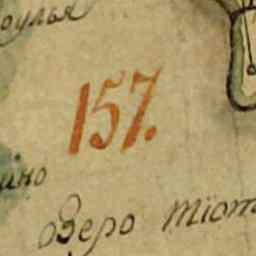 оулья
157.
ино
Озеро тіот